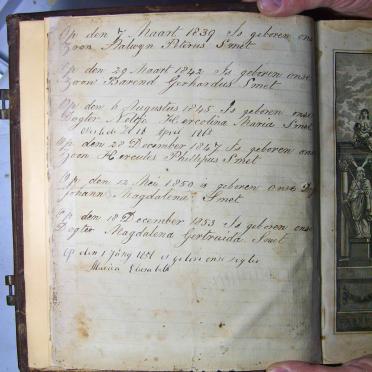 Op den 7 Maart 1839 Is geboren ons
Zoon Stalwyn Peterus Smet
Op den 29 Maart 1842 Is geboren onse
Zoon Barend Gerhardus Smet
Op den 6 Augustus 1845 Is geboren onse
Dogter Neltje Hercolina Maria Smet
April 1863
Op den 28 December 1847 Is geboren ons
Zoon Hercules Phillipus Smet
Op den 12 Mei 1850 is geboren onse Dog
Johann Magdalena Smet
Op den 18 December 1853 Is geboren onse
Dogter Magdalena Gertruida Smet
Op den 1 is gebore onse
Maria Elisabeth